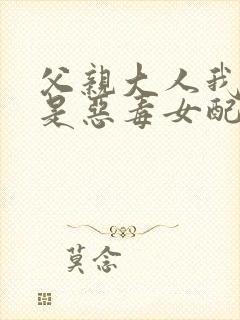 父親大人我
是惡毒女配
莫念